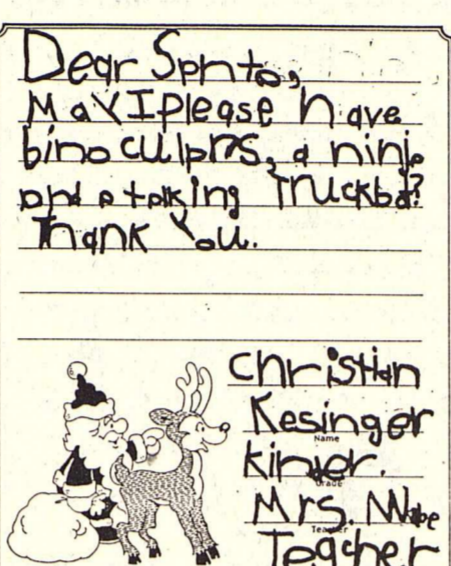 Dear Santa,
May I please have
binoculars, a ninja
and a talking Truckbot?
Thank You.
Christian
Kesinger
Name
kinder.
Grade
Mrs. Mabe
Teacher
Teacher